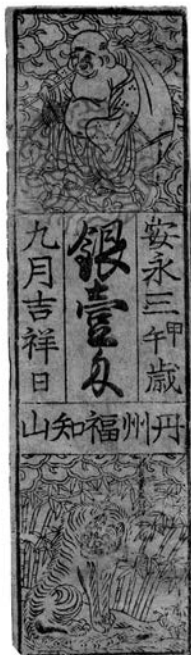 安永三甲午歳
銀壹匁
九月吉祥日
丹州福知山